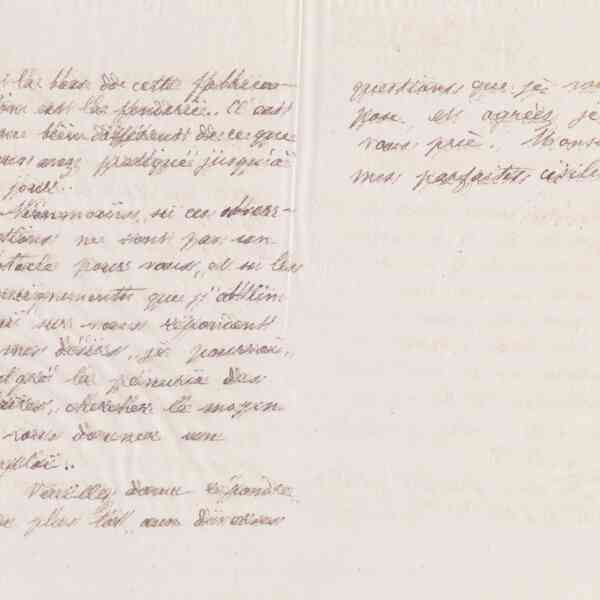 i la base de cette fabrica-
ion est la fonderie. C'est
ne bien différent de ce que
ous avez pratiqué jusqu'à
jour..
Néanmoins, si ces obser-
ations ne sont pas un
stacle pour vous, et si les
nseignements que j'obtien
ai sur vous répondent
mes désirs, je pourrai,
lgré la pénurie des
aires, chercher le moyen
vous donner un
mploi..
Veuillez donc répondre
e plus tôt aux diverses
questions que je vou
pose, et agréez, je
vous prie. Monsi
mes parfaites civili